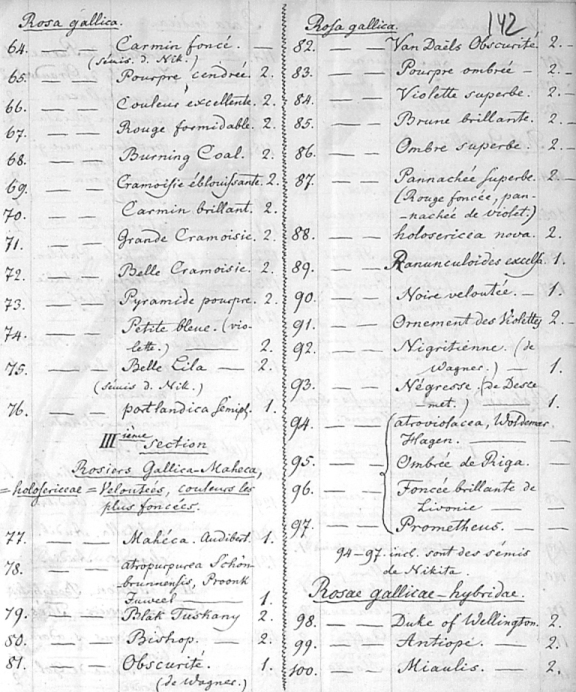 Rosa gallica.
64. — — Carmin foncé. —
(sémis d. Nik.)
65. — — Pourpre cendrée. 2.
66. — — Couleur excellente. 2.
67. — — Rouge formidable. 2.
68. — — Burning Coal. 2.
69. — — Cramoisie éblouissante. 2.
70. — — Carmin brillant. 2.
71. — — Grande Cramoisie. 2.
72. — — Belle Cramoisie. 2.
73. — — Pyramide pourpre. 2.
74. — — Petite bleue. (vio-
lette.) — 2.
75. — — Belle Lila — 2.
(sémis d. Nik.)
76. — — portlandica semipl. 1.
III ième section
Rosiers Gallica-Maheca,
= holosericeae = Veloutées, couleurs les
plus foncées.
77. — — Mahéca. Audibert. 1.
78. — — atropurpurea Schön-
brunnensis, Proonk
Juweel 1.
79. — — Blak Tuskany 2.
80. — — Bishop. — 2.
81. — — Obscurité. 1.
(de Wagner.)
142
Rosa gallica.
82. — — Van Daëls Obscurité. 2. -
83. — — Pourpre ombrée — 2. -
84. — — Violette superbe. 2. -
85. — — Brune brillante. 2.
86. — — Ombre superbe. 2. -
87. — — Pannachée superbe. 2. -
(Rouge foncée, pan-
-nachée de violet.)
88. — — holosericea nova. 2.
89. — — Ranunculoides excelsa. 1.
90. — — Noire veloutée. — 1.
91. — — Ornement des Violettes 2. -
92. — — Nigritienne. (de
Wagner.) — 1.
93. — — Négresse. (de Desce-
met.) 1.
94. — — atroviolacea, Woldemar
Hagen. —
95. — — Ombrée de Riga. —
96. — — Foncée brillante de
Livonie —
97. — — Prometheus. —
94-97. incl. sont des sémis
de Nikita.
Rosae gallicae-hybridae.
98. — — Duke of Wellington. 2.
99. — — Antiope. — 2.
100. — — Miaulis. — 2.